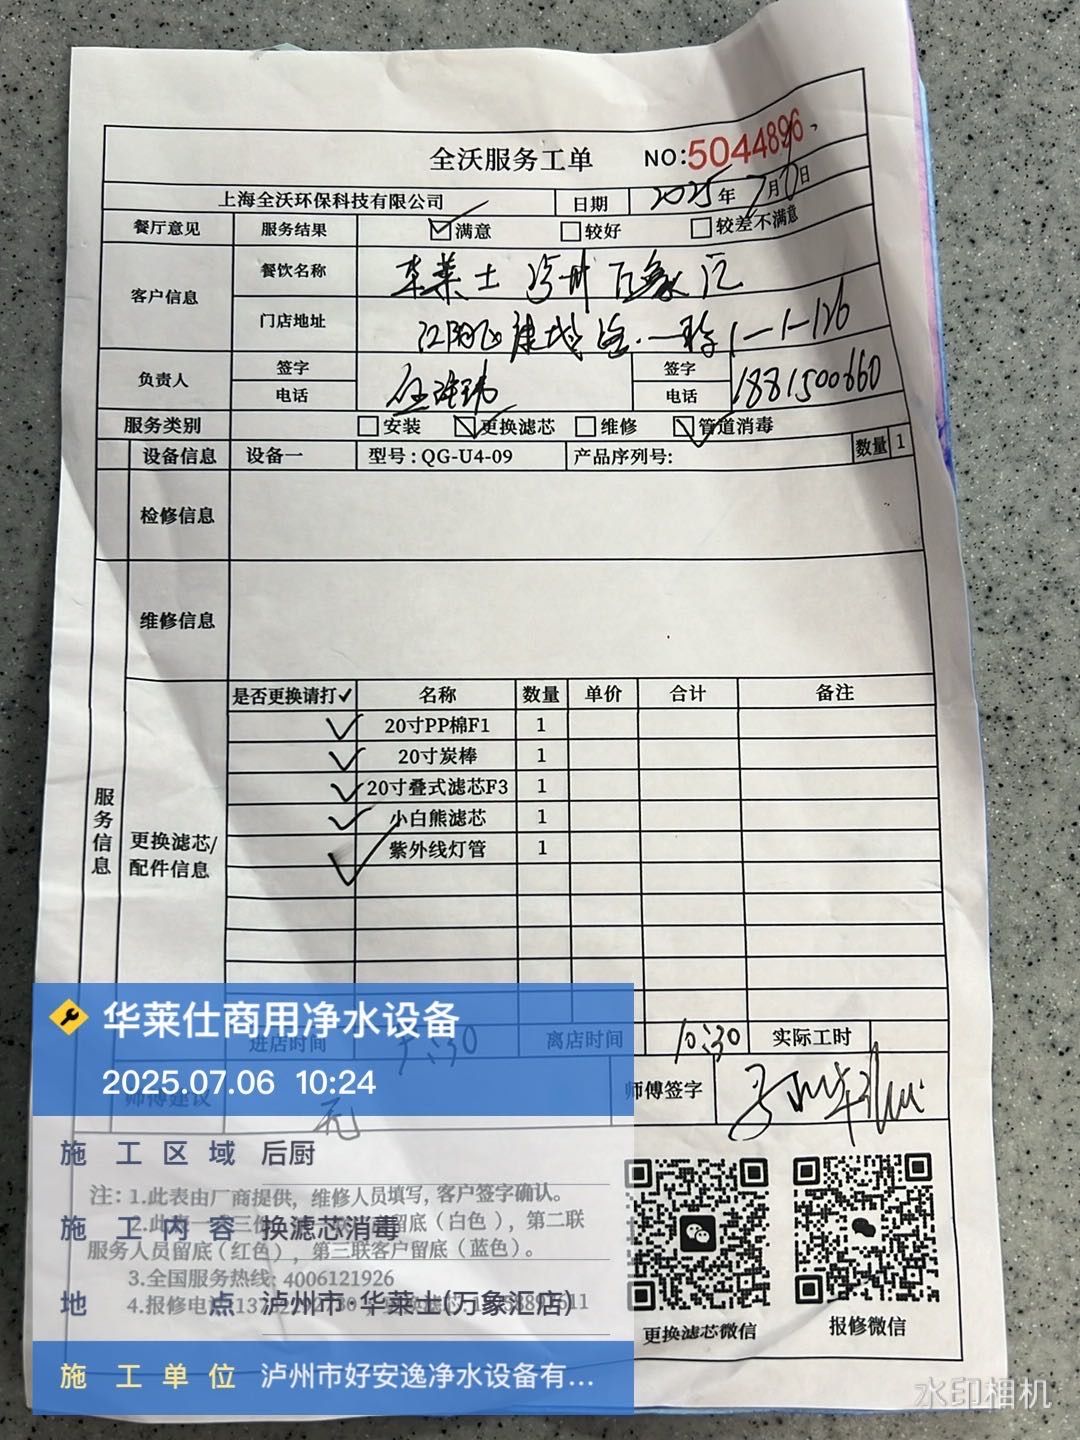 全沃服务工单 NO:5044896
上海全沃环保科技有限公司 日期 2025年7月 日
餐厅意见 服务结果 满意 较好 较差不满意
客户信息 餐饮名称 华莱士 泸州万象汇
门店地址 江阳区 1-1-126
负责人 签字 签字
电话 电话 18815008660
服务类别 安装 更换滤芯 维修 管道消毒
设备信息 设备一 型号:QG-U4-09 产品序列号: 数量 1
检修信息
维修信息
服务信息
更换滤芯/配件信息
是否更换请打✓ 名称 数量 单价 合计 备注
✓ 20寸PP棉F1 1
✓ 20寸炭棒 1
✓ 20寸叠式滤芯F3 1
✓ 小白熊滤芯 1
✓ 紫外线灯管 1
进店时间 离店时间 10:30 实际工时
师傅建议 无 师傅签字
注: 1.此表由厂商提供, 维修人员填写, 客户签字确认。
留底(白色), 第二联
服务人员留底(红色), 第三联客户留底(蓝色)。
3.全国服务热线: 4006121926
4.报修电
更换滤芯微信 报修微信
华莱仕商用净水设备
2025.07.06 10:24
施工区域 后厨
施工内容 换滤芯消毒
地点 泸州市·华莱士(万象汇店)
施工单位 泸州市好安逸净水设备有...
水印相机